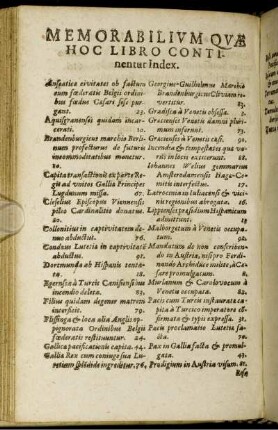 MEMORABILIVM QVÆ
HOC LIBRO CONTI-
nentur Index.
Ausiatica civitates ob factum
cum fœderatis Belgii ordini-
bus fœdus Cæsari sese pur-
gant. 23.
Aquisgranensi quidam incar-
cerati. 10.
Brandenburgicus marchio Berli-
num profecturus de futuris
incommoditatibus monetur.
10.
Capita transactionis ex parte Re-
gis ad unitos Galliæ Principes
Lugdunum missa.
Cleselius Episcopus Viennensis
pileo Cardinalitio donatur.
20.
Collonitius in captivitatem de-
abductus.
Condæus Lutetia in captivitatem
abductus.
Dortmunda ab Hispanis tenta-
ta. 18.
Egernsea à Turcis Canisiensibus
incendio deleta.
Filius quidam degener matrem
interficit. 79.
Flissinga & loca alia Anglis op-
pignorata Ordinibus Belgii
fœderatis restituuntur. 24.
Gallica pacificationis capita. 44.
Gallia Rex cum conjuge sua Lu-
tetiam splendide ingreditur. 76,
Georgius-Guilhelmus Marchio
Brandenburgicus Cliviam re-
vertitur. 23.
Gradisca à Venetis obsessa.
Gratenses Veneti damni pluri-
mum inferunt. 73.
Gratenses à Venetis cæsi.
Incendia & tempestates quæ va-
riis in locis exciterunt.
Iohannes Wellus grammarum
Amsterodamensis Haga-Co-
mitis interfectus. 27.
Latrocinia in lubacensi & vici-
nis regionibus abrogata.
Lippensis præsidium Hispanicum
admittunt.
Malborgetum à Venetis occupa-
tum. 90.
Mandatum de non conscriben-
do in Austria, nisi pro Ferdi-
nando Archiduce milite, à Cæ-
sare promulgatum. 8.
Murianum & Carolovocum à
Venetis occupata.
Pacis cum Turcis instaurata ca-
pita à Turcico imperatore cõ-
firmata & typis expressa. 31.
Pacis proclamatio Lutetiæ fa-
cta. 70.
Pax in Gallia facta & promul-
gata.
Prodigium in Austria visum. 81.